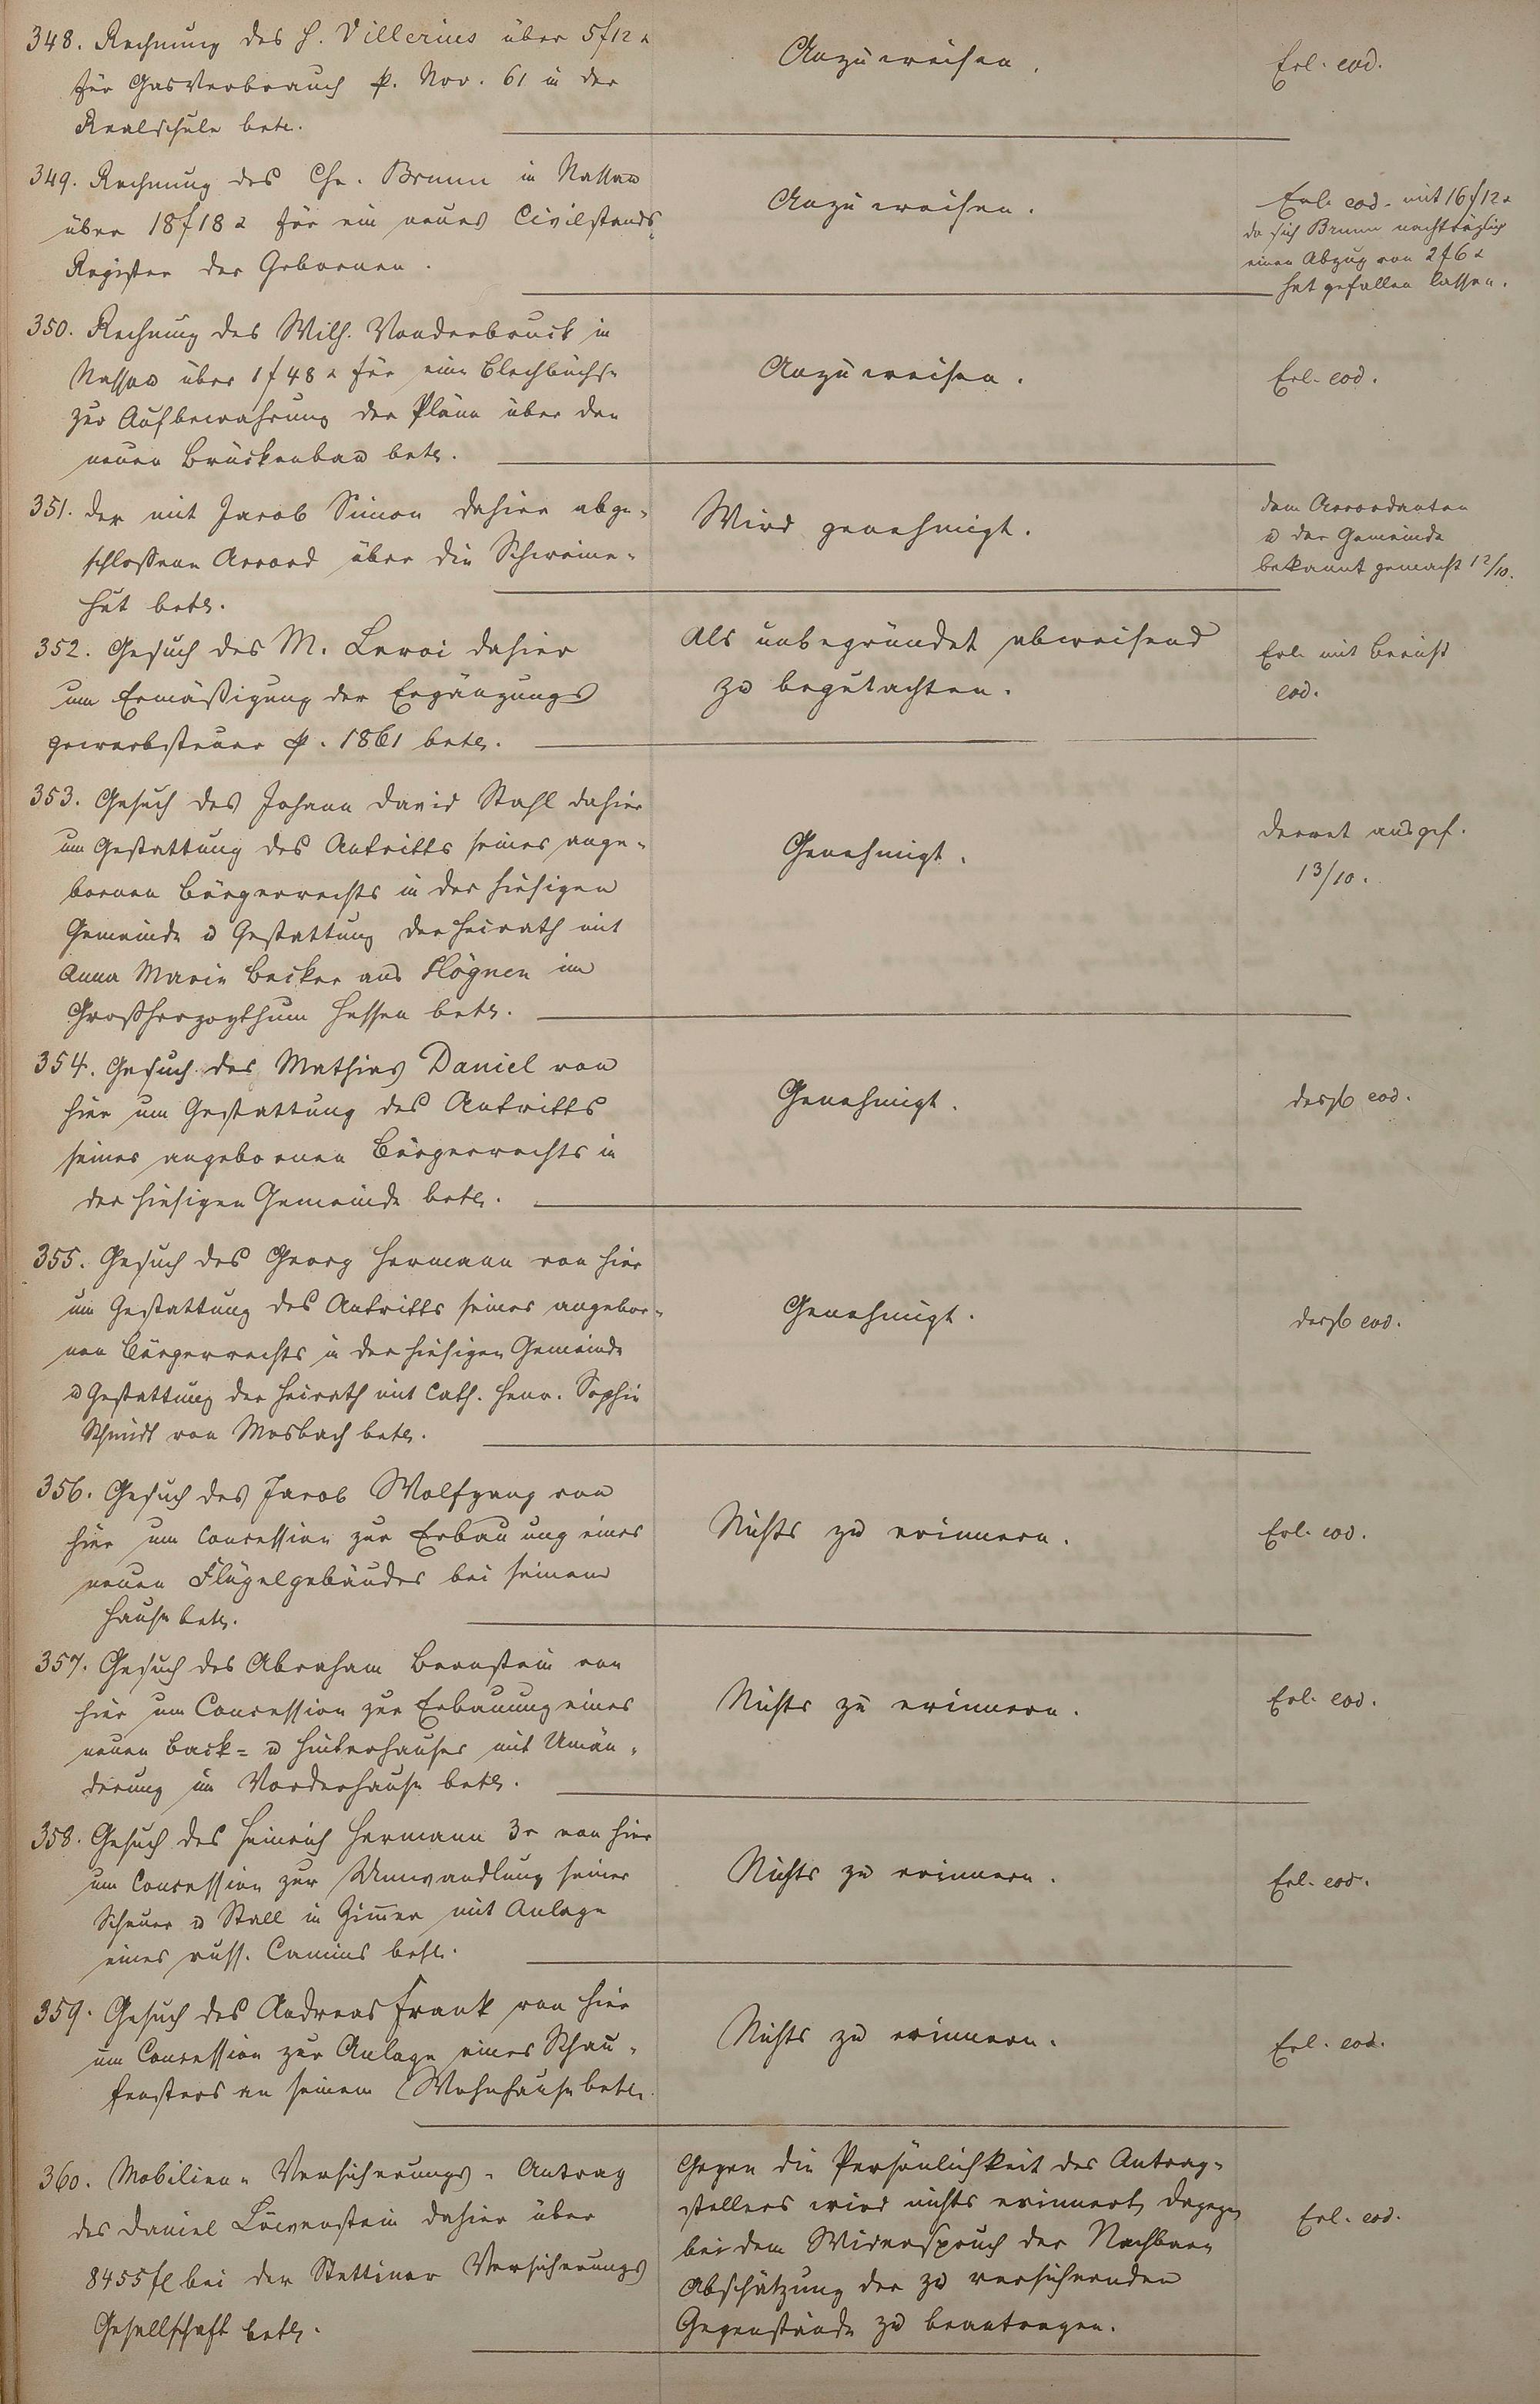 348. Rechnung des H. Villerius über 5 f 12 x
für Gasverbrauch p. Nov. 61 in der
Realschule betr.
Anzuweisen.
Erl. eod.
349. Rechnung des Chr. Brunn in Nassau
über 18 f 18 x für ein neues Civilstands-
Register der Gebornen.
Anzuweisen.
Erl. eod. mit 16 f 12 x
da sich Brunn nachträglich
einen Abzug von 2 f 6 x
hat gefallen lassen.
350. Rechnung des Wilh. Vonderbruck in
Nassau über 1 f 48 x für eine Blechbüchse
zur Aufbewahrung der Pläne über den
neuen Brückenbau betr.
Anzuweisen.
Erl. eod.
351. Der mit Jacob Simon dahier abge-
schlossene Accord über die Schweine-
hut betr.
Wird genehmigt.
Dem Accordanten
u der Gemeinde
bekannt gemacht 12/10.
352. Gesuch des M. Leroi dahier
um Ermäßigung der Ergänzungs
gewerbsteuer p. 1861 betr.
Als unbegründet abweisend
zu begutachten.
Erl. mit Bericht
eod.
353. Gesuch des Johann David Stahl dahier
um Gestattung des Antritts seines ange-
bornen Bürgerrechts in der hiesigen
Gemeinde u Gestattung der Heirath mit
Anna Marie Becker aus Högnen im
Großherzogthum Hessen betr.
Genehmigt.
Decret ausgef.
13/10.
354. Gesuch des Mathias Daniel von
hier um Gestattung des Antritts
seines angebornen Bürgerrechts in
der hiesigen Gemeinde betr.
Genehmigt.
desgl eod.
355. Gesuch des Georg Hermann von hier
um Gestattung des Antritts seines angebor-
nen Bürgerrechts in der hiesigen Gemeinde
u Gestattung der Heirath mit Cath. Henr. Sophie
Schmidt von Mosbach betr.
Genehmigt.
desgl eod.
356. Gesuch des Jacob Wolfgang von
hier um Concession zur Erbauung eines
neuen Flügelgebäudes bei seinem
Hause betr.
Nichts zu erinnern.
Erl. eod.
357. Gesuch des Abraham Bernstein von
hier um Concession zur Erbauung eines
neuen Back- u Hinterhauses mit Umän-
derung im Vorderhause betr.
Nichts zu erinnern.
Erl. eod.
358. Gesuch des Heinrich Hermann 3r von hier
um Concession zur Umwandlung seiner
Scheuer u Stall in Zimmer mit Anlage
eines russ. Camins betr.
Nichts zu erinnern.
Erl. eod.
359. Gesuch des Andreas Frank von hier
um Concession zur Anlage eines Schau-
fensters an seinem Wohnhause betr.
Nichts zu erinnern.
Erl. eod.
360. Mobilien-Versicherungs-Antrag
des Daniel Löwenstein dahier über
8455 fl bei der Stettiner Versicherungs
Gesellschaft betr.
Gegen die Persönlichkeit des Antrag-
stellers wird nichts erinnert, dagegen
bei dem Widerspruch der Nachbarn
Abschätzung der zu versichernden
Gegenstände zu beantragen.
Erl. eod.